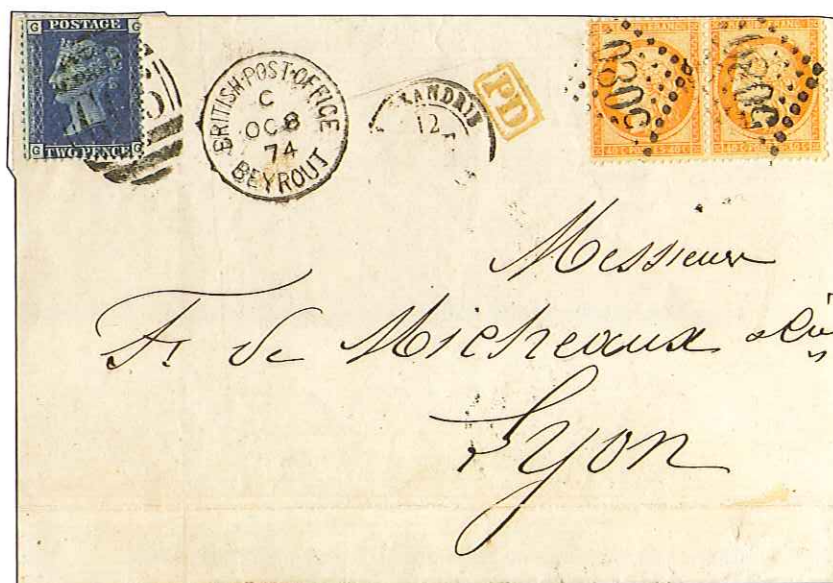 G POSTAGE G
G TWO PENCE G
BRITISH·POST·OFFICE
C
OC 8
74
BEYROUT
XANDRIE
12
PD
5080
5080
Messieur
F. de Micheaux
Lyon